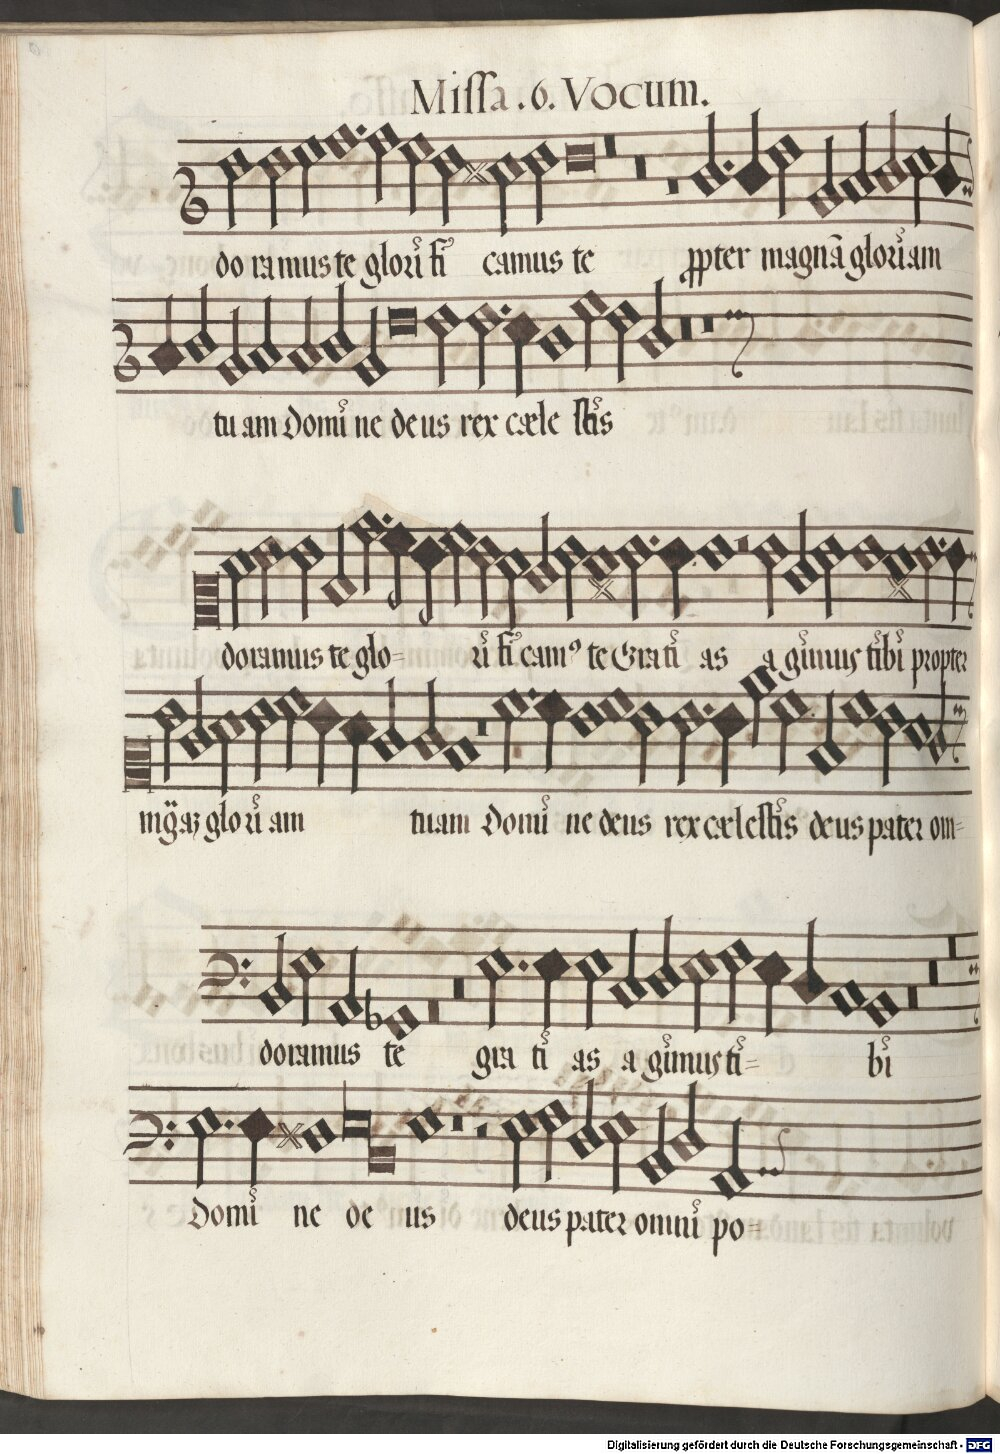 Missa .6. Vocum.
do ramus te glori fi camus te ppter magnā gloriam
tu am Domi ne de us rex cæle stis
doramus te glo= ri fi cam⁹ te Gra ti as a gimus tibi propter
glo ri am tuam Domi ne deus rex cæl estis deus pater om=
doramus te gra ti as a gimus ti= bi
Domi ne de us deus pater omni po=
Digitalisierung gefördert durch die Deutsche Forschungsgemeinschaft - DFG